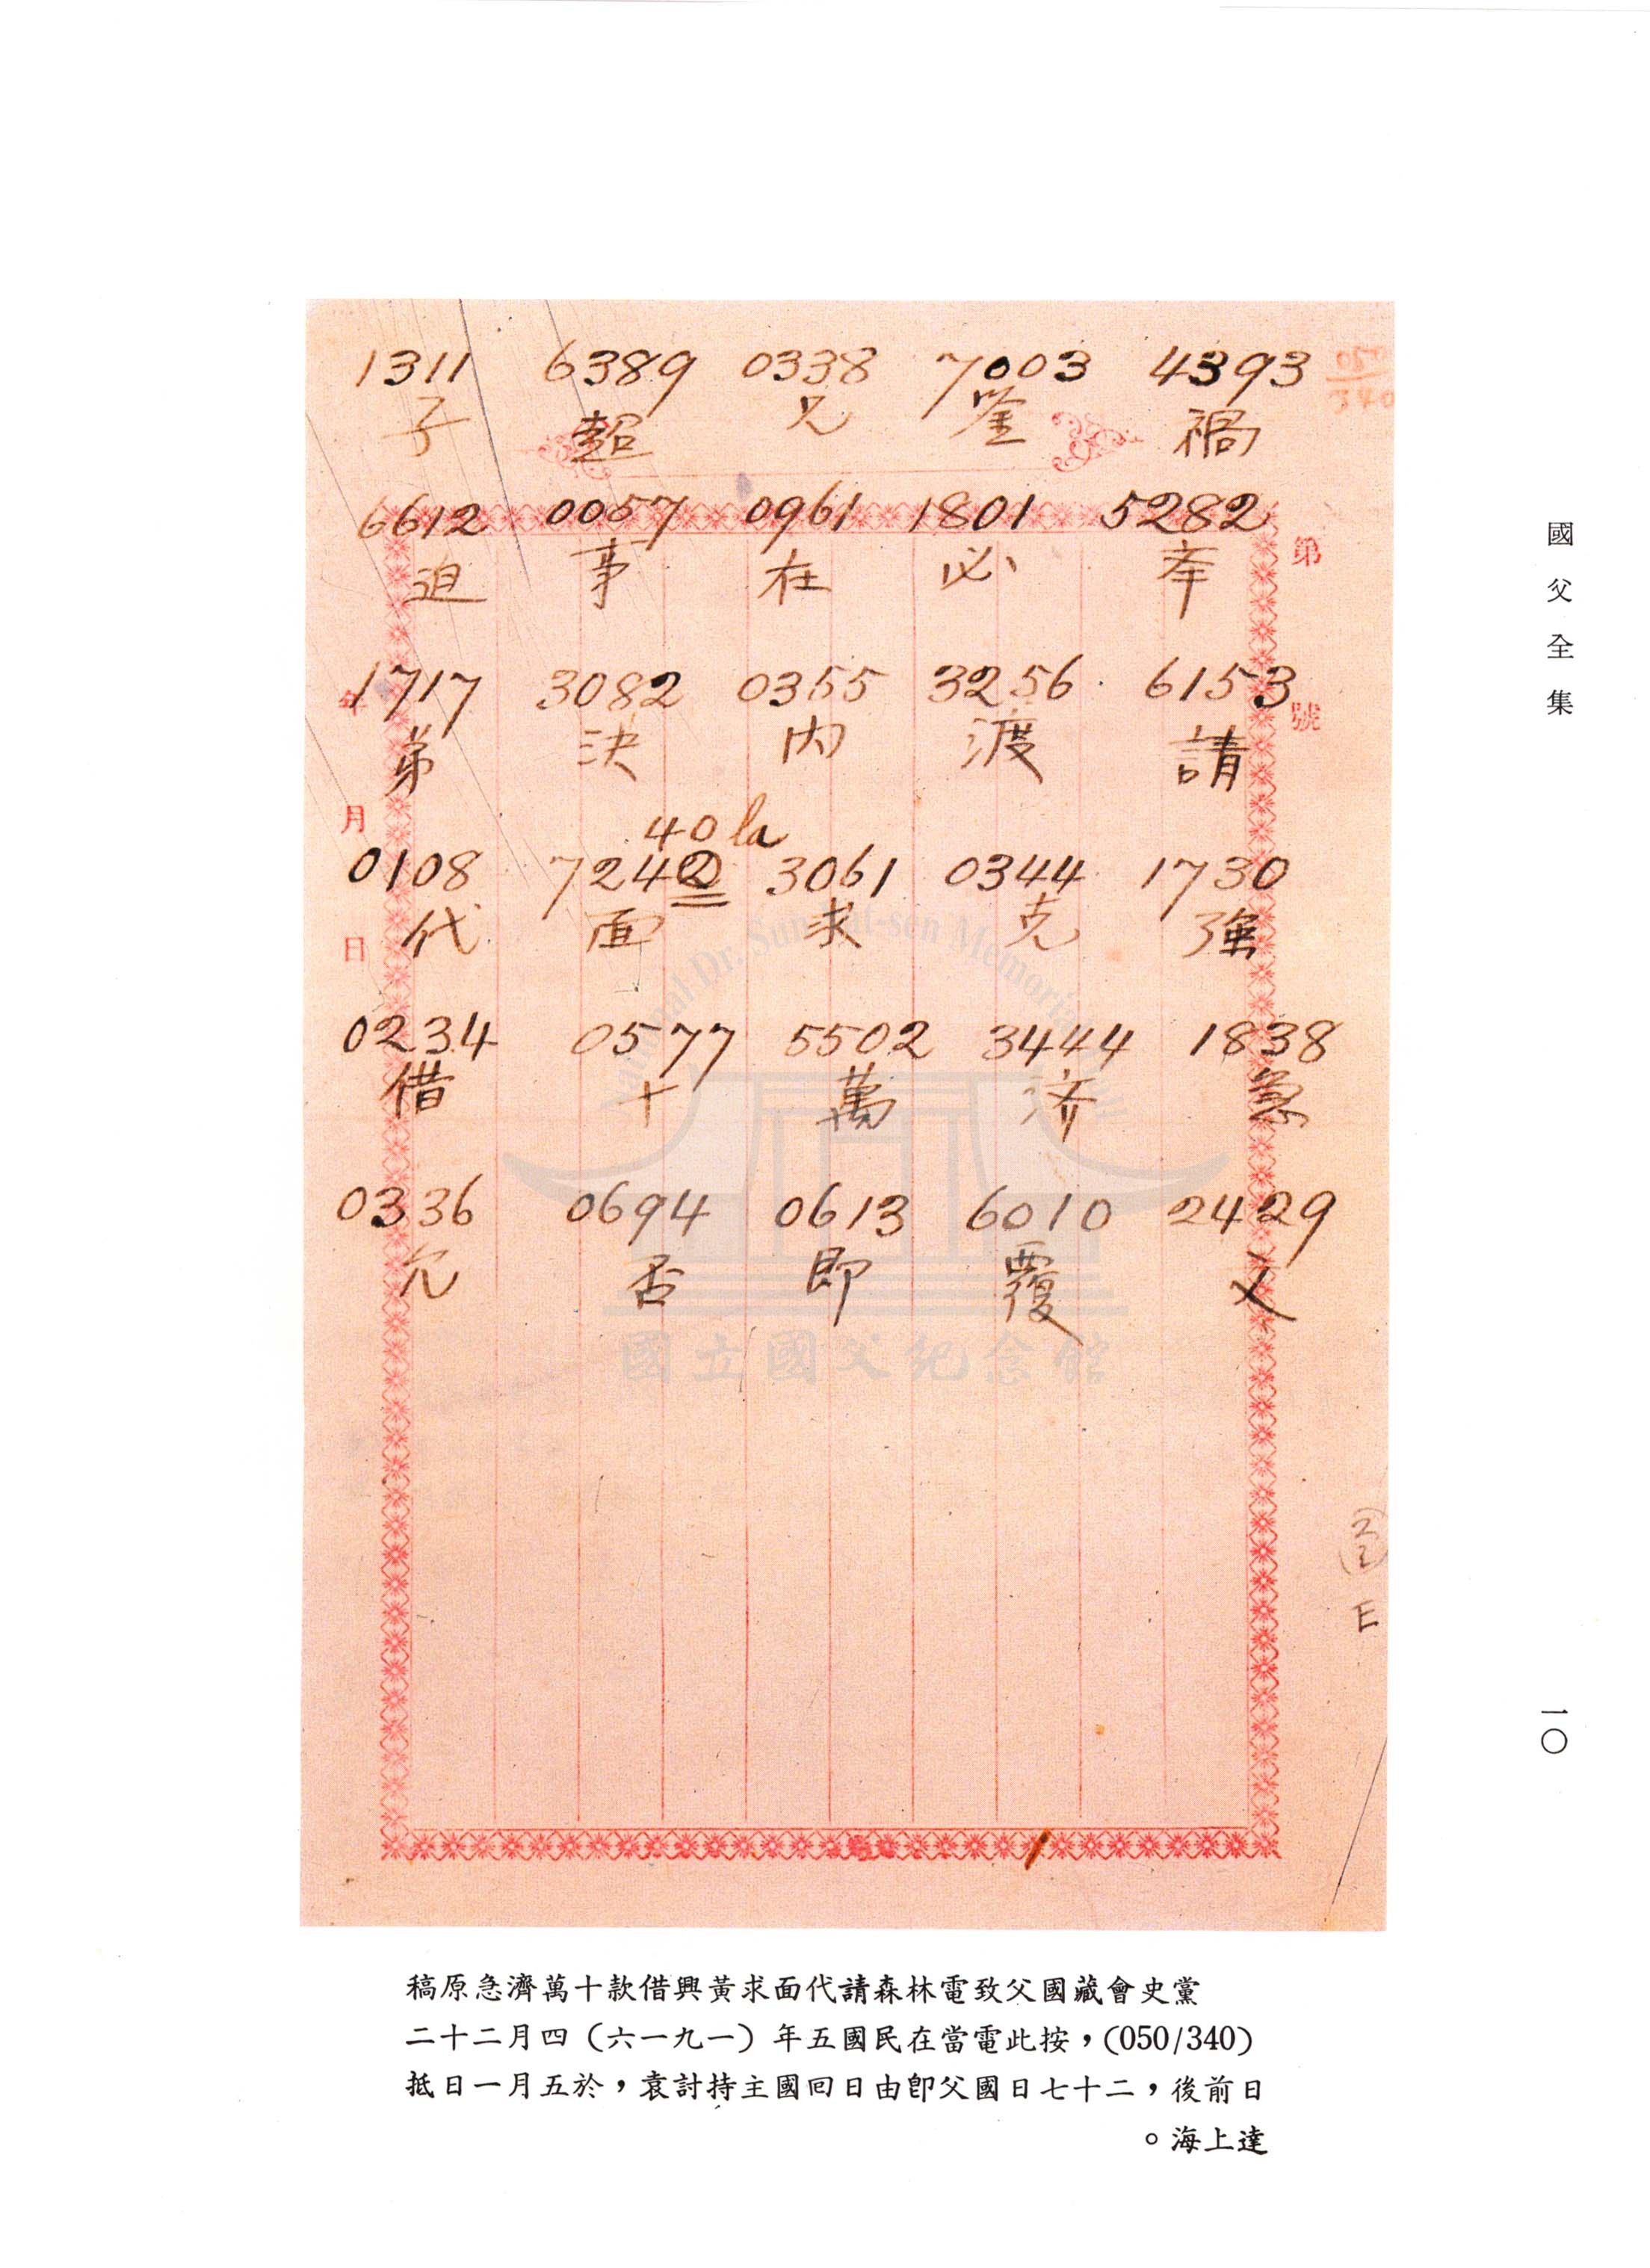 國父全集
一〇
050
340
1311 6389 0338 7003 4393
子 超 兄 鉴 禍
6612 0057 0961 1801 5282
迫 事 在 必 牽
1717 3082 0355 3256 6153
弟 決 内 渡 請
40 la
0108 7242 3061 0344 1730
代 面 求 克 強
0234 0577 5502 3444 1838
借 十 萬 济 急
0336 0694 0613 6010 2429
允 否 即 覆 文
第 號
年 月 日
E
National Dr. Sun Yat-sen Memorial
國立國父紀念館
稿原急濟萬十款借興黃求面代請森林電致父國藏會史黨
二十二月四（六一九一）年五國民在當電此按，(050/340)
抵日一月五於，袁討持主國回日由即父國日七十二，後前日
。海上達